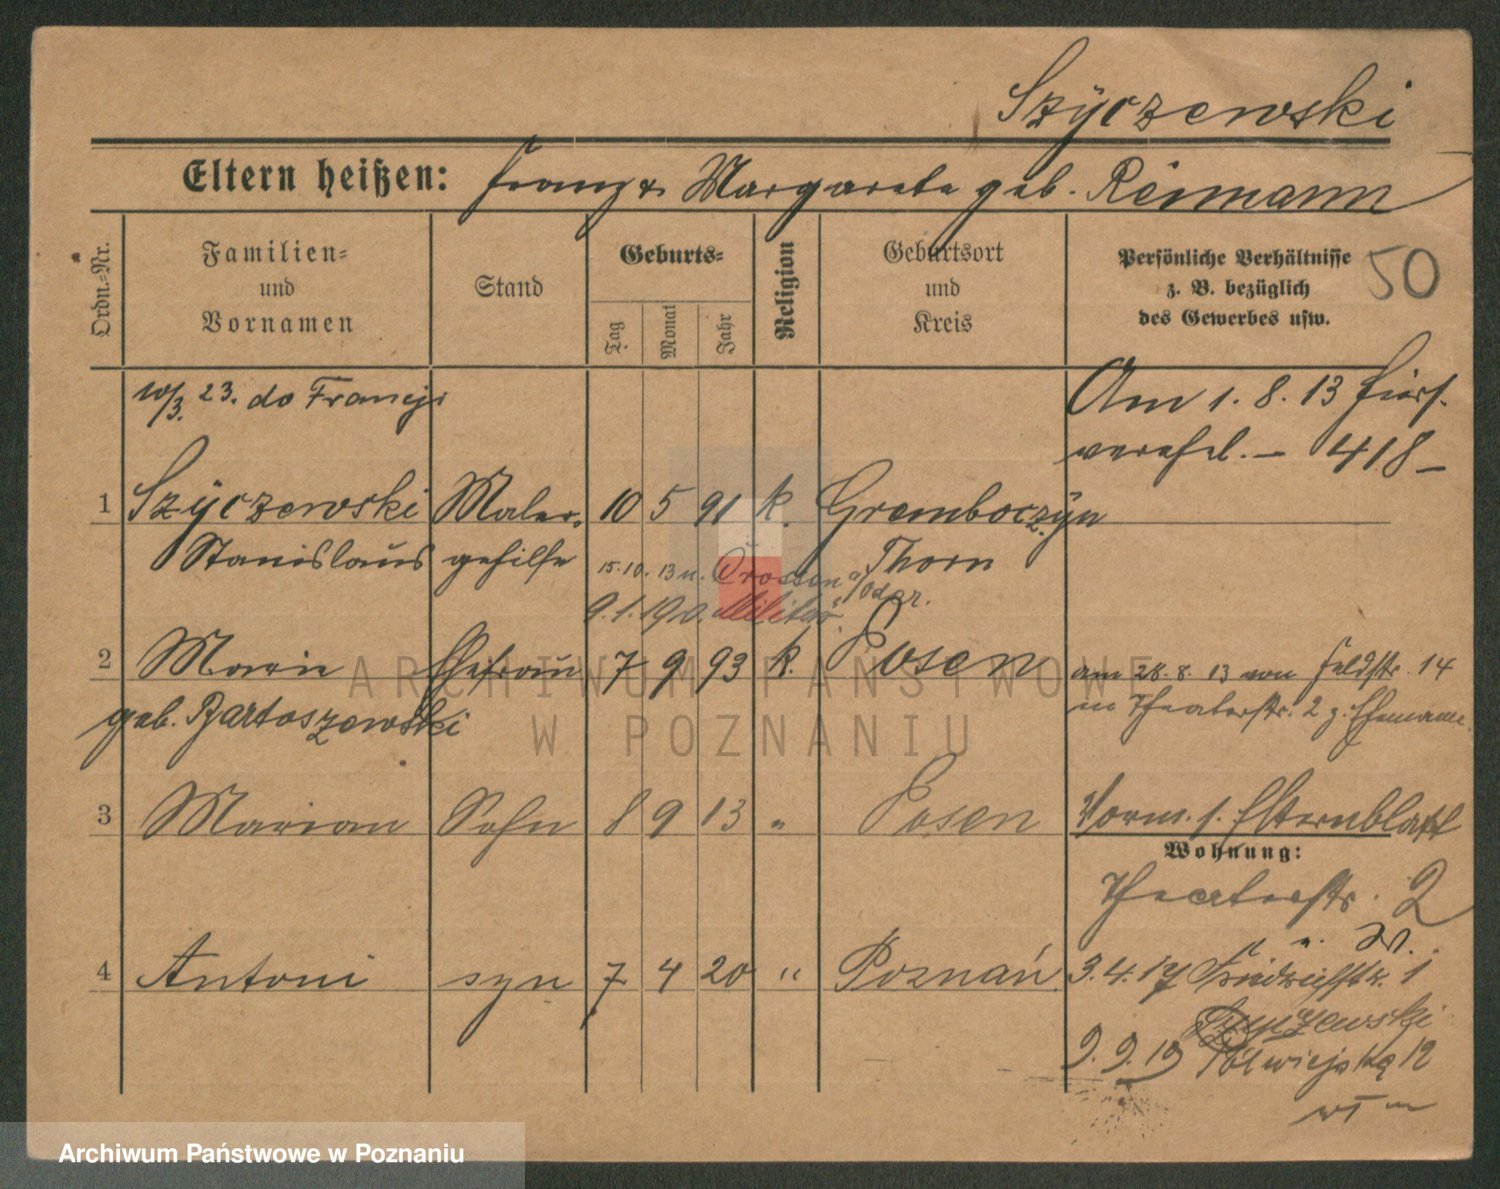 Szyczewski
Eltern heißen: Franz u. Margarete geb. Reimann
Ordn.-Nr.
Familien-
und
Vornamen
Stand
Geburts-
Tag
Monat
Jahr
Religion
Geburtsort
und
Kreis
Persönliche Verhältnisse
z. B. bezüglich
des Gewerbes usw.
50
10/3. 23. do Francji
Am 1. 8. 13 hier
verehel. – 418 –
1 Szyczewski Maler- 10 5 91 k. Gremboczyn
Stanislaus gehilfe Thorn
15.10. 13 n. Crossen a/Oder.
9.1.19 v. Militär
2 Marie Ehefrau 7 9 93 k. Posen
geb. Bartoszewski
am 28. 8. 13 von Feldstr. 14
n. Theaterstr. 2 z. Ehemann
3 Marian Sohn 8 9 13 " Posen
Vorm. s. Elternblatt
Wohnung:
Theaterstr. 2
4 Antoni syn 7 4 20 " Poznań
3.4.17 Friedrichstr. 1
Szyczewski
9.9.19 Półwiejska 12
ARCHIWUM PAŃSTWOWE
W POZNANIU
Archiwum Państwowe w Poznaniu